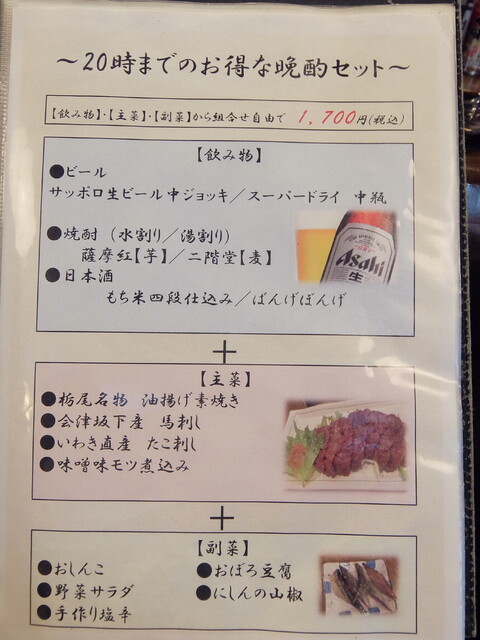 ～20時までのお得な晩酌セット～
【飲み物】・【主菜】・【副菜】から組合せ自由で 1,700円(税込)
【飲み物】
●ビール
サッポロ生ビール中ジョッキ／スーパードライ 中瓶
●焼酎（水割り／湯割り）
薩摩紅【芋】／二階堂【麦】
●日本酒
もち米四段仕込み／ばんげぼんげ
Asahi
生
＋
【主菜】
●栃尾名物 油揚げ素焼き
●会津坂下産 馬刺し
●いわき直産 たこ刺し
●味噌味モツ煮込み
＋
【副菜】
●おしんこ ●おぼろ豆腐
●野菜サラダ ●にしんの山椒
●手作り塩辛